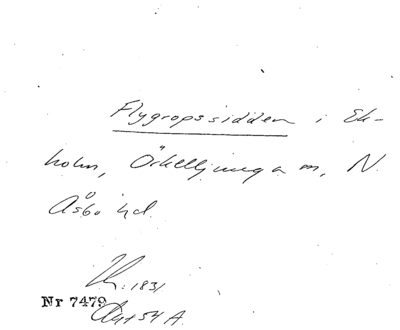 Flygropssidden i Ek-
holm, Örkelljunga sn, N.
Åsbo hd.
1831
Nr 7479
Akt 54 A.